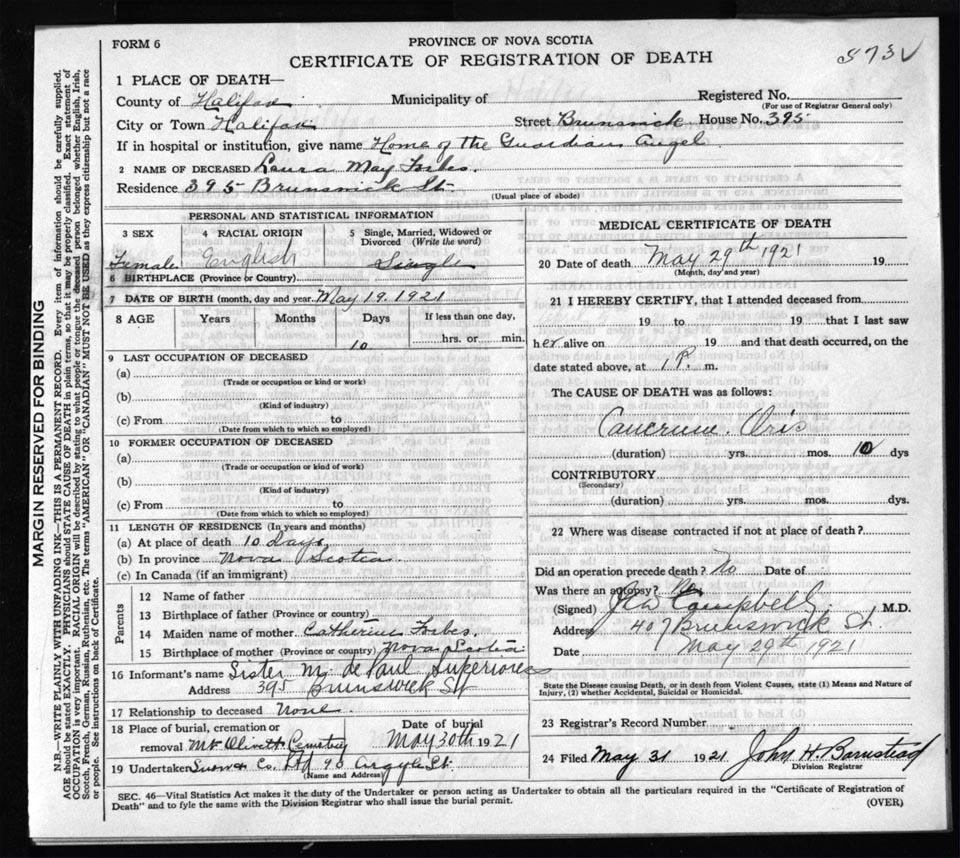 FORM 6
PROVINCE OF NOVA SCOTIA
CERTIFICATE OF REGISTRATION OF DEATH
573 V
1 PLACE OF DEATH—
County of Halifax Municipality of Registered No.
(For use of Registrar General only)
City or Town Halifax Street Brunswick House No. 395
If in hospital or institution, give name Home of the Guardian Angel
2 NAME OF DECEASED Laura May Forbes.
Residence 395 Brunswick St.
(Usual place of abode)
PERSONAL AND STATISTICAL INFORMATION
3 SEX 4 RACIAL ORIGIN 5 Single, Married, Widowed or Divorced (Write the word)
Female English Single
6 BIRTHPLACE (Province or Country)
7 DATE OF BIRTH (month, day and year) May 19. 1921
8 AGE Years Months Days If less than one day,
10 hrs. or min.
9 LAST OCCUPATION OF DECEASED
(a)
(Trade or occupation or kind or work)
(b)
(Kind of industry)
(c) From to
(Date from which to which so employed)
10 FORMER OCCUPATION OF DECEASED
(a)
(Trade or occupation or kind of work)
(b)
(Kind of industry)
(c) From to
(Date from which to which so employed)
11 LENGTH OF RESIDENCE (In years and months)
(a) At place of death 10 days
(b) In province Nova Scotia
(c) In Canada (if an immigrant)
Parents
12 Name of father
13 Birthplace of father (Province or country)
14 Maiden name of mother Catherine Forbes.
15 Birthplace of mother (Province or country) Nova Scotia
16 Informant's name Sister M. de Paul Superioress
Address 395 Brunswick St
17 Relationship to deceased None
18 Place of burial, cremation or removal Mt Olivett Cemetery
Date of burial May 30th 1921
19 Undertaker Snow & Co. Ltd 90 Argyle St.
(Name and Address)
MEDICAL CERTIFICATE OF DEATH
20 Date of death May 29th 1921 19
(Month, day and year)
21 I HEREBY CERTIFY, that I attended deceased from
19 to 19 that I last saw
her alive on 19 and that death occurred, on the
date stated above, at 1 P. m.
The CAUSE OF DEATH was as follows:
Cancrum Oris
(duration) yrs. mos. 10 dys
CONTRIBUTORY
(Secondary)
(duration) yrs. mos. dys.
22 Where was disease contracted if not at place of death?
Did an operation precede death? No Date of
Was there an autopsy? No
(Signed) Campbell M.D.
Address 407 Brunswick St.
Date May 29th 1921
State the Disease causing Death, or in death from Violent Causes, state (1) Means and Nature of
Injury, (2) whether Accidental, Suicidal or Homicidal.
23 Registrar's Record Number
24 Filed May 31 1921 John H Barnstead
Division Registrar
SEC. 46—Vital Statistics Act makes it the duty of the Undertaker or person acting as Undertaker to obtain all the particulars required in the "Certificate of Registration of
Death" and to fyle the same with the Division Registrar who shall issue the burial permit.
(OVER)
MARGIN RESERVED FOR BINDING
N.B.—WRITE PLAINLY WITH UNFADING INK—THIS IS A PERMANENT RECORD. Every item of information should be carefully supplied.
AGE should be stated EXACTLY. PHYSICIANS should STATE CAUSE OF DEATH in plain terms, so that it may be properly classified. Exact statement of
OCCUPATION is very important. RACIAL ORIGIN will be described by stating to what people or tongue the deceased person belonged whether English, Irish,
Scotch, French, German, Russian, Ruthenian, etc. The terms "AMERICAN" OR "CANADIAN" MUST NOT BE USED as they express citizenship but not a race
or people. See instructions on back of Certificate.